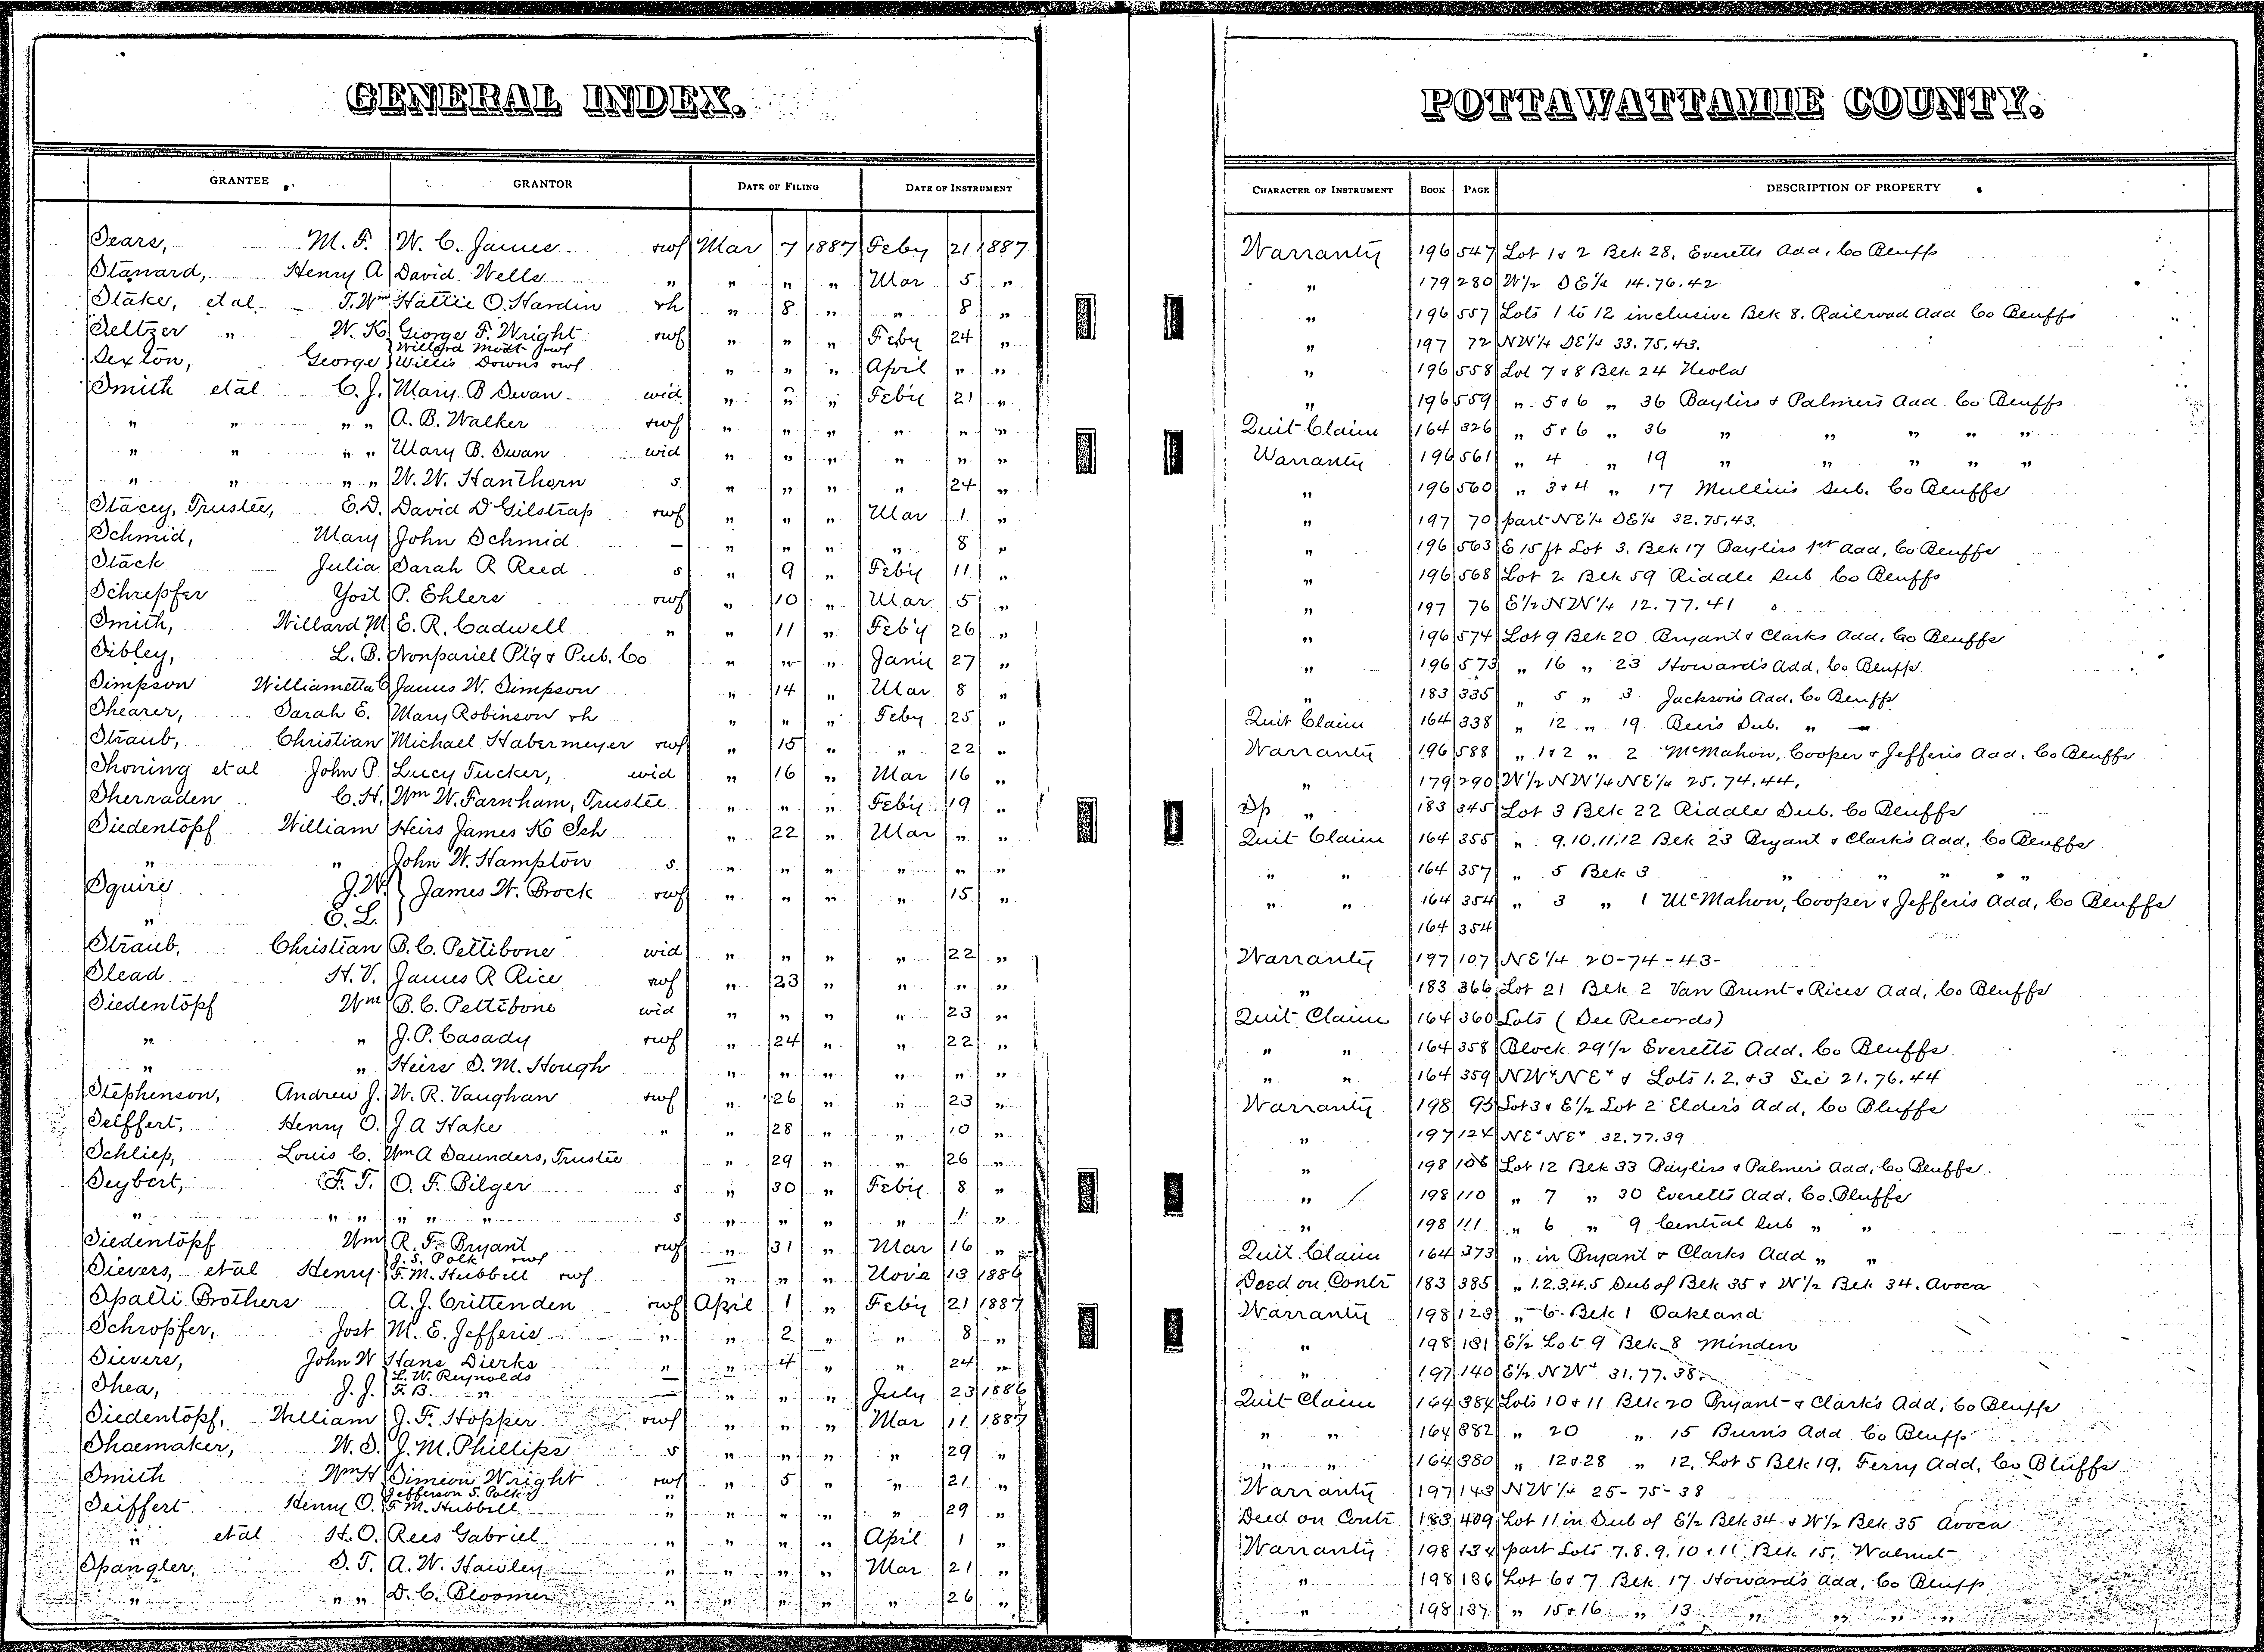 GENERAL INDEX.
POTTAWATTAMIE COUNTY.
GRANTEE GRANTOR DATE OF FILING DATE OF INSTRUMENT CHARACTER OF INSTRUMENT BOOK PAGE DESCRIPTION OF PROPERTY
Sears, M. F. W. C. James rwf Mar 7 1887 Feby 21 1887 Warranty 196 547 Lot 1 & 2 Blk 28, Everetts Add, Co Bluffs
Stanard, Henry A David Wells " " " " Mar 5 " " 179 280 W½ SE¼ 14.76.42
Stake, et al T. Wm Hattie O. Hardin rh " 8 " " 8 " " 196 557 Lots 1 to 12 inclusive Blk 8. Railroad Add Co Bluffs
Seltzer " W. K. George F. Wright rwf " " " Feby 24 " " 197 72 NW¼ SE¼ 33.75.43.
Willard Mott rwf
Sexton, George Willis Downs rwf " " " April " " " 196 558 Lot 7 & 8 Blk 24 Neola
Smith et al C. J. Mary B Swan wid " " Feb'y 21 " " 196 559 " 5 & 6 " 36 Bayliss & Palmers Add Co Bluffs
" " " " A. B. Walker rwf " " " " " " Quit Claim 164 326 " 5 & 6 " 36 " " " " "
" " " " Mary B. Swan wid " " " " " " Warranty 196 561 " 4 " 19 " " " " "
" " " " W. W. Hanthorn s " " " " 24 " " 196 560 " 3 & 4 " 17 Mullins Sub. Co Bluffs
Stacey, Trustee, E. D. David D Gilstrap rwf " " " Mar 1 " " 197 70 part NE¼ SE¼ 32.75.43.
Schmid, Mary John Schmid — " " " " 8 " " 196 563 E 15 ft Lot 3. Blk 17 Bayliss 1st Add, Co Bluffs
Stack Julia Sarah R Reed s " 9 " Feb'y 11 " " 196 568 Lot 2 Blk 59 Riddle Sub Co Bluffs
Schrepfer Yost P. Ehlers rwf " 10 " Mar 5 " " 197 76 E½ NW¼ 12.77.41
Smith, Willard M E. R. Cadwell " " 11 " Feb'y 26 " " 196 574 Lot 9 Blk 20 Bryant & Clarks Add, Co Bluffs
Sibley, L. B. Nonpariel Ptg & Pub. Co " " " Jan'y 27 " " 196 573 " 16 " 23 Howard's Add, Co Bluffs
Simpson Williametta C James W. Simpson " 14 " Mar 8 " " 183 335 " 5 " 3 Jackson's Add, Co Bluffs
Shearer, Sarah E. Mary Robinson rh " " " Feby 25 " Quit Claim 164 338 " 12 " 19. Beers Sub. " "
Straub, Christian Michael Habermeyer rwf " 15 " " 22 " Warranty 196 588 " 1 & 2 " 2 McMahon, Cooper & Jefferis Add, Co Bluffs
Shoning et al John P. Lucy Tucker, wid " 16 " Mar 16 " " 179 290 W½ NW¼ NE¼ 25.74.44.
Sherraden C. H. Wm W. Farnham, Trustee " " " Feb'y 19 " Sp " 183 345 Lot 3 Blk 22 Riddle Sub. Co Bluffs
Siedentopf William Heirs James K Ish " 22 " Mar " " Quit Claim 164 355 " 9.10.11.12 Blk 23 Bryant & Clark's Add, Co Bluffs
" " John W. Hampton s " " " " " " " " 164 357 " 5 Blk 3 " " " " "
Squire J. W. James W. Brock rwf " " " " 15 " " " 164 354 " 3 " 1 McMahon, Cooper & Jefferis Add, Co Bluffs
" E. L. 164 354
Straub, Christian B. C. Pettibone wid " " " " 22 " Warranty 197 107 NE¼ 20-74-43-
Slead H. V. James R Rice rwf " 23 " " " " " 183 366 Lot 21 Blk 2 Van Brunt & Rices Add, Co Bluffs
Siedentopf Wm B. C. Pettibone wid " " " " 23 " Quit Claim 164 360 Lots (See Records)
" " J. P. Casady rwf " 24 " " 22 " " " 164 358 Block 29½ Everetts Add. Co Bluffs
" " Heirs S. M. Hough " " " " " " " " 164 359 NW⁴ NE⁴ & Lots 1. 2. & 3 Sec 21.76.44
Stephenson, Andrew J. W. R. Vaughan rwf " 26 " " 23 " Warranty 198 95 Lot 3 & E½ Lot 2 Elder's Add, Co Bluffs
Seiffert, Henry O. J. A Hake " " 28 " " 10 " " 197 124 NE⁴ NE⁴ 32.77.39
Schliep, Louis C. Wm A Saunders, Trustee " 29 " " 26 " " 198 106 Lot 12 Blk 33 Bayliss & Palmers Add, Co Bluffs
Seybert, F. T. O. F. Bilger s " 30 " Feb'y 8 " " 198 110 " 7 " 30 Everetts Add, Co. Bluffs
" " " " " " s " " " " 1 " " 198 111 " 6 " 9 Central Sub " "
Siedentopf Wm R. F. Bryant rwf " 31 " Mar 16 " Quit Claim 164 373 " in Bryant & Clarks Add " "
J. S. Polk rwf
Sievers, et al Henry F. M. Hubbell rwf " " " Nov'e 13 1886 Deed on Contr 183 385 " 1.2.3.4.5 Sub of Blk 35 & W½ Blk 34. Avoca
Spalti Brothers A. J. Crittenden rwf April 1 " Feb'y 21 1887 Warranty 198 123 " 6 - Blk 1 Oakland
Schropfer, Jost M. E. Jefferis " " 2 " " 8 " " 198 131 E½ Lot 9 Blk 8 Minden
Sievers, John W Hans Dierks " " 4 " " 24 " " 197 140 E½ NW⁴ 31.77.38.
L. W. Reynolds
Shea, J. J. F. B. " — " " " July 23 1886 Quit Claim 164 384 Lots 10 & 11 Blk 20 Bryant & Clark's Add, Co Bluffs
Siedentopf, William J. F. Hopper rwf " " " Mar 11 1887 " " 164 382 " 20 " 15 Burn's Add Co Bluffs
Shoemaker, W. S. J. M. Phillips s " " " " 29 " " " 164 380 " 12 & 28 " 12, Lot 5 Blk 19. Ferry Add, Co Bluffs
Smith Wm H Simeon Wright rwf " 5 " " 21 " Warranty 197 143 NW¼ 25-75-38
Jefferson S. Polk
Seiffert Henry O. F. M. Hubbell " " " " " 29 " Deed on Contr 183 409 Lot 11 in Sub of E½ Blk 34 & W½ Blk 35 Avoca
" et al H. O. Rees Gabriel " " " " April 1 " Warranty 198 134 part Lots 7.8.9.10 & 11 Blk 15, Walnut
Spangler, S. T. A. W. Hawley " " " " Mar 21 " " 198 136 Lot 6 & 7 Blk 17 Howard's Add, Co Bluffs
" " " D. C. Bloomer " " " " " 26 " " 198 137 " 15 & 16 " 13 " " " "